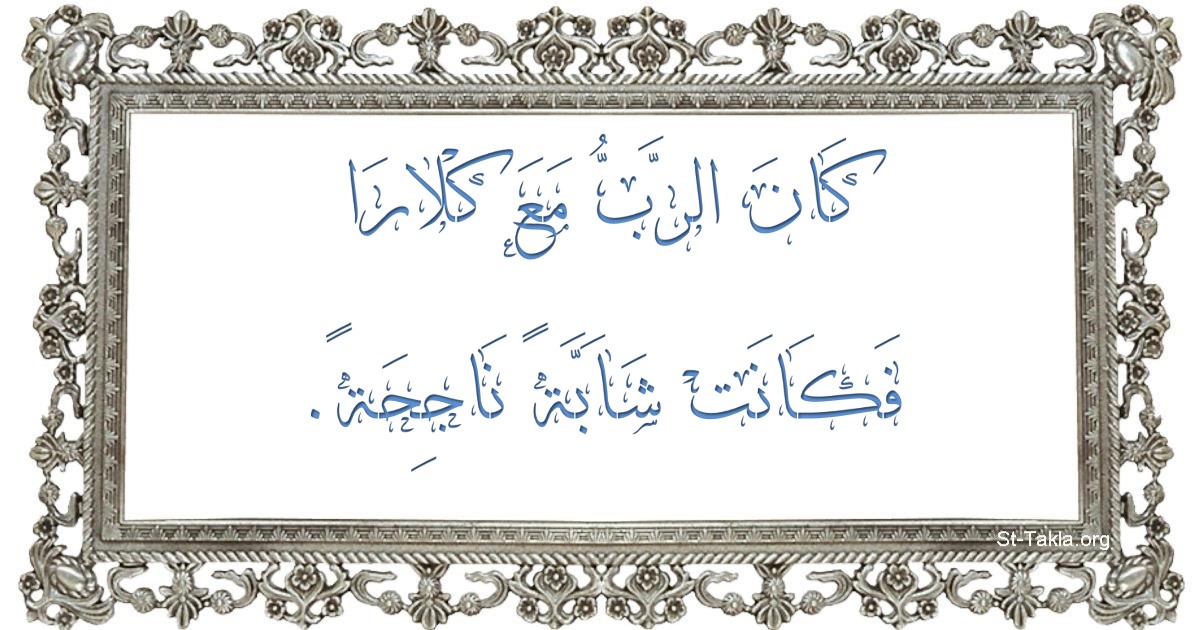 كَانَ الرَّبُّ مَعَ كْلَارَا
فَكَانَتْ شَابَّةً نَاجِحَةً.
St-Takla.org